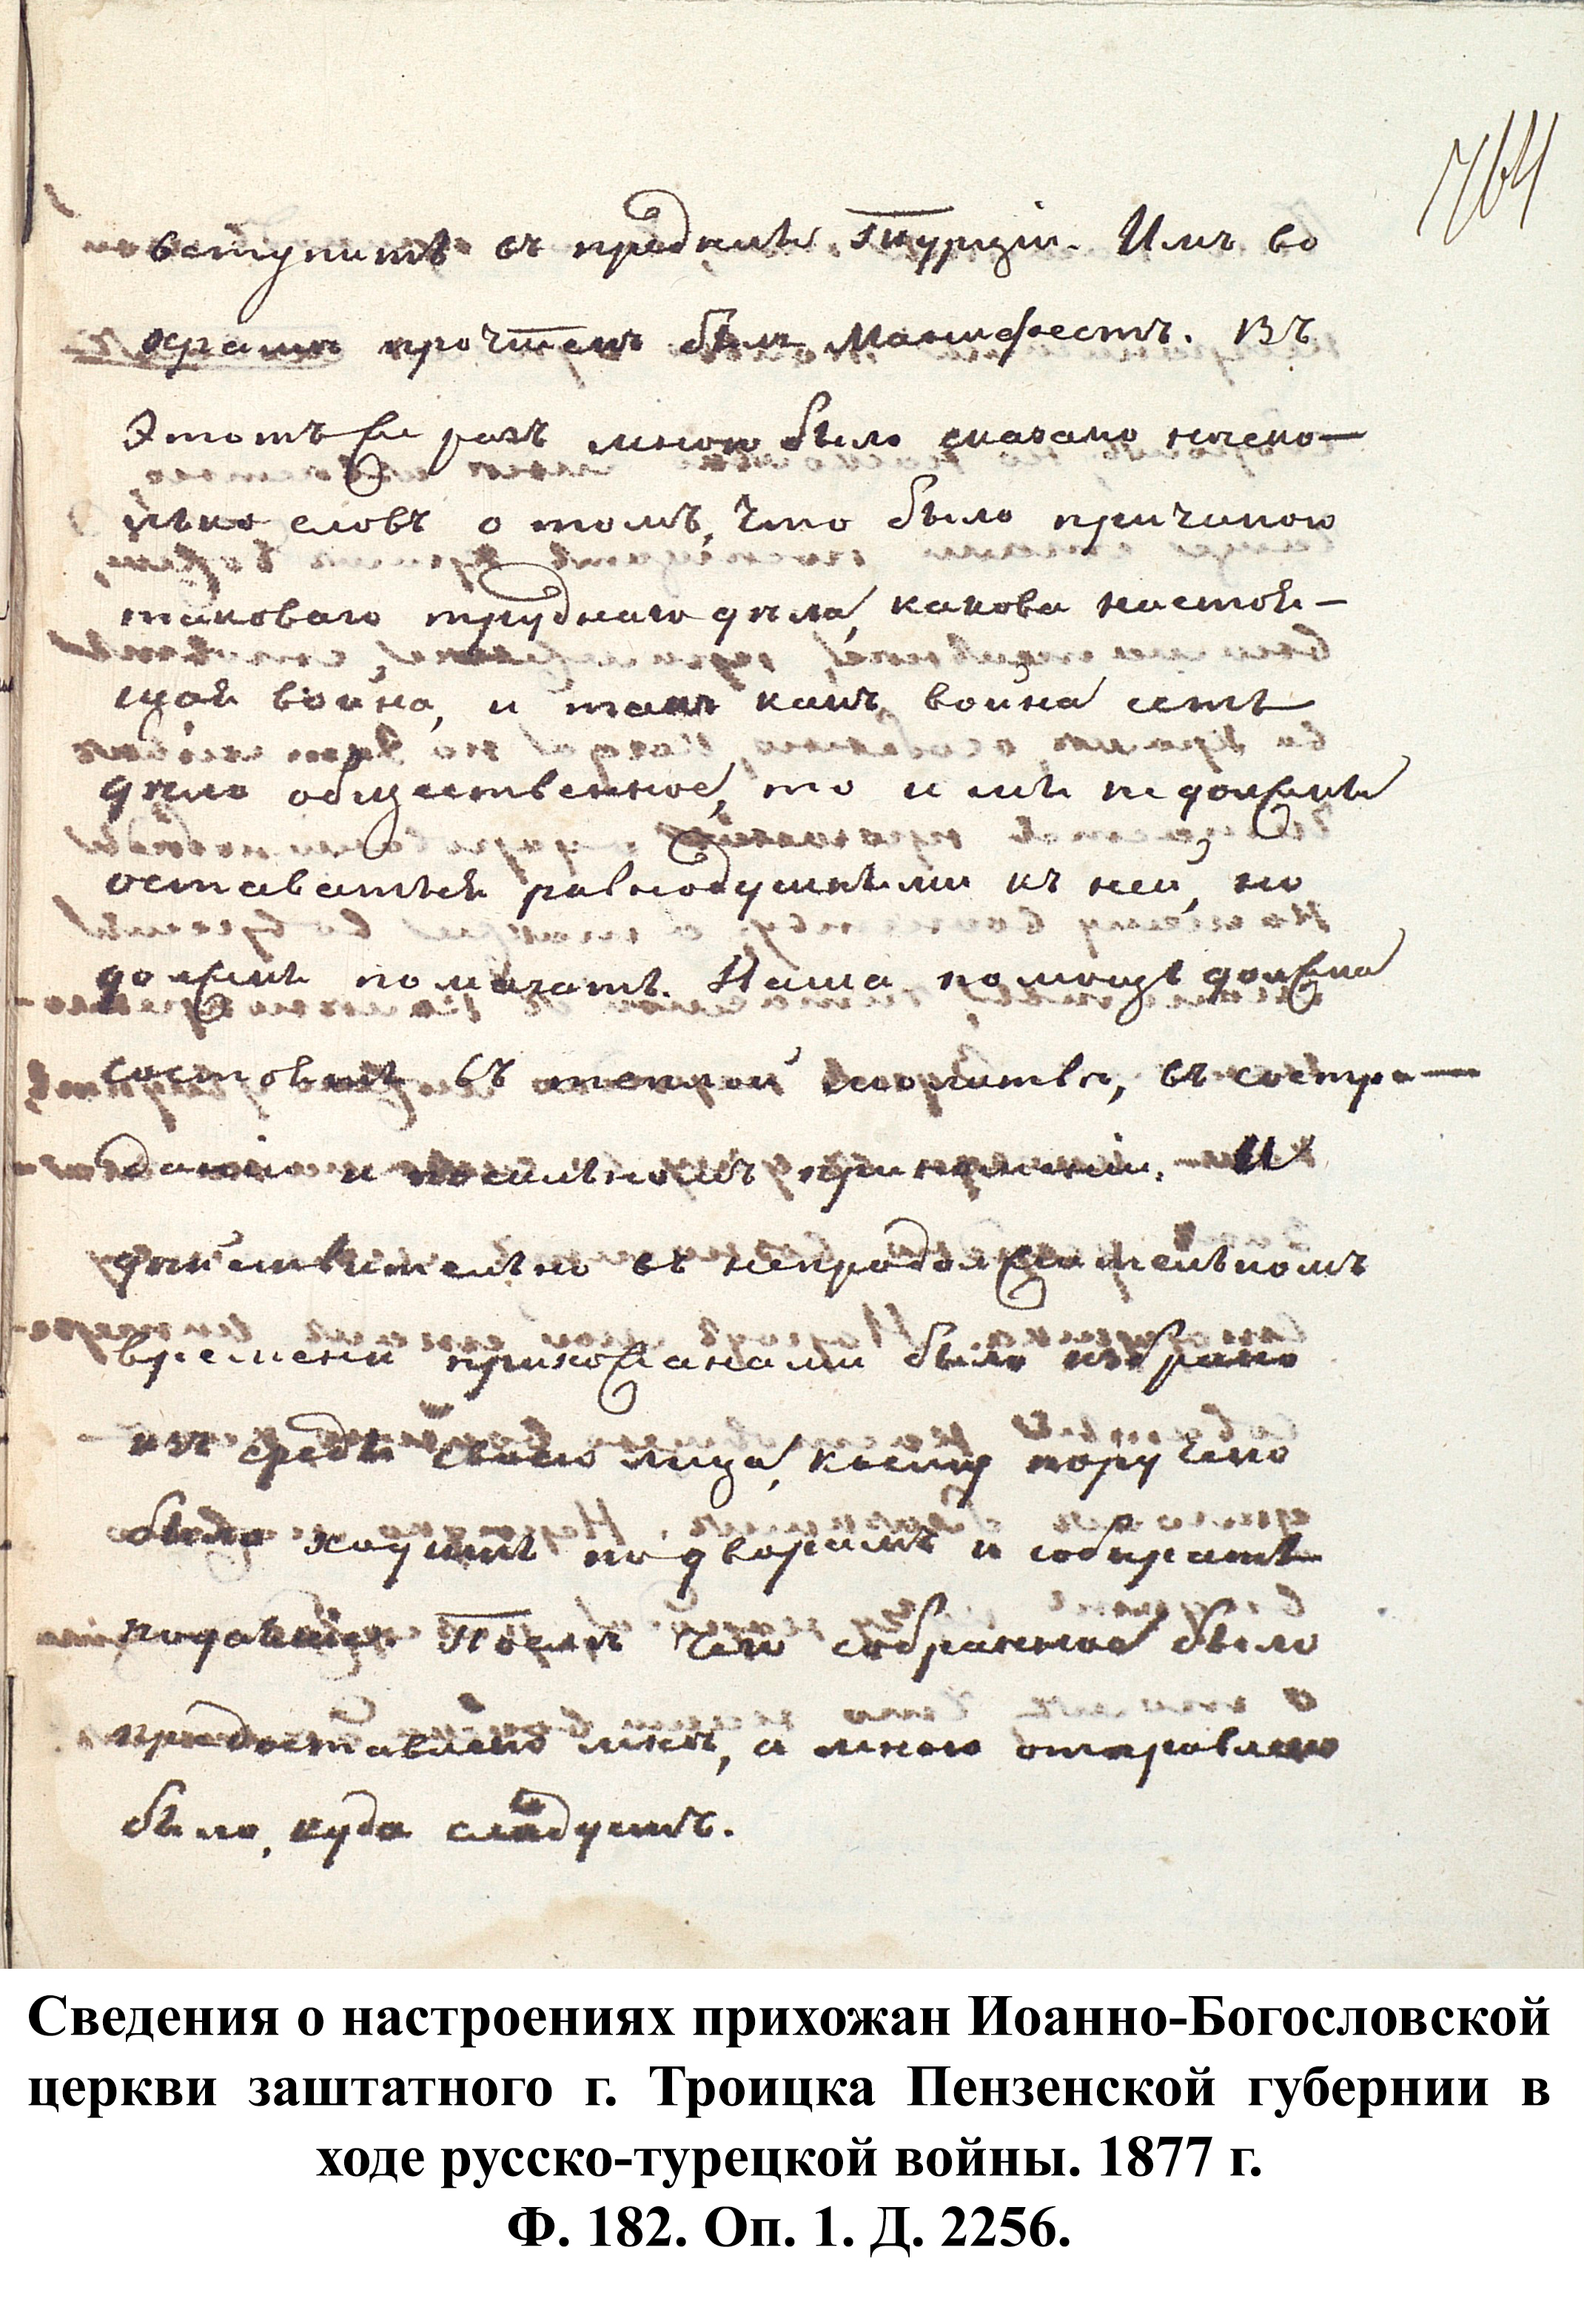 164
вступить въ предѣлы Турціи. Имъ во
храмѣ прочтенъ былъ Манифестъ. Въ
этотъ же разъ мною было сказано нѣско-
лько словъ о томъ, что было причиною
таковаго труднаго дѣла, какова настоя-
щая война, и такъ какъ война есть
дѣло общественное, то и мы не должны
оставаться равнодушными къ ней, но
должны помогать. Наша помощь должна
состоять въ теплой молитвѣ, въ состра-
даніи и посильномъ приношеніи. И
дѣйствительно въ непродолжительномъ
времени прихожанами было избрано
изъ среды своею лица, коему поручено
было ходить по дворамъ и собирать
подаянія. Послѣ чего собранное было
предоставлено мнѣ, а мною отправлено
было, куда слѣдуетъ.
Сведения о настроениях прихожан Иоанно-Богословской
церкви заштатного г. Троицка Пензенской губернии в
ходе русско-турецкой войны. 1877 г.
Ф. 182. Оп. 1. Д. 2256.